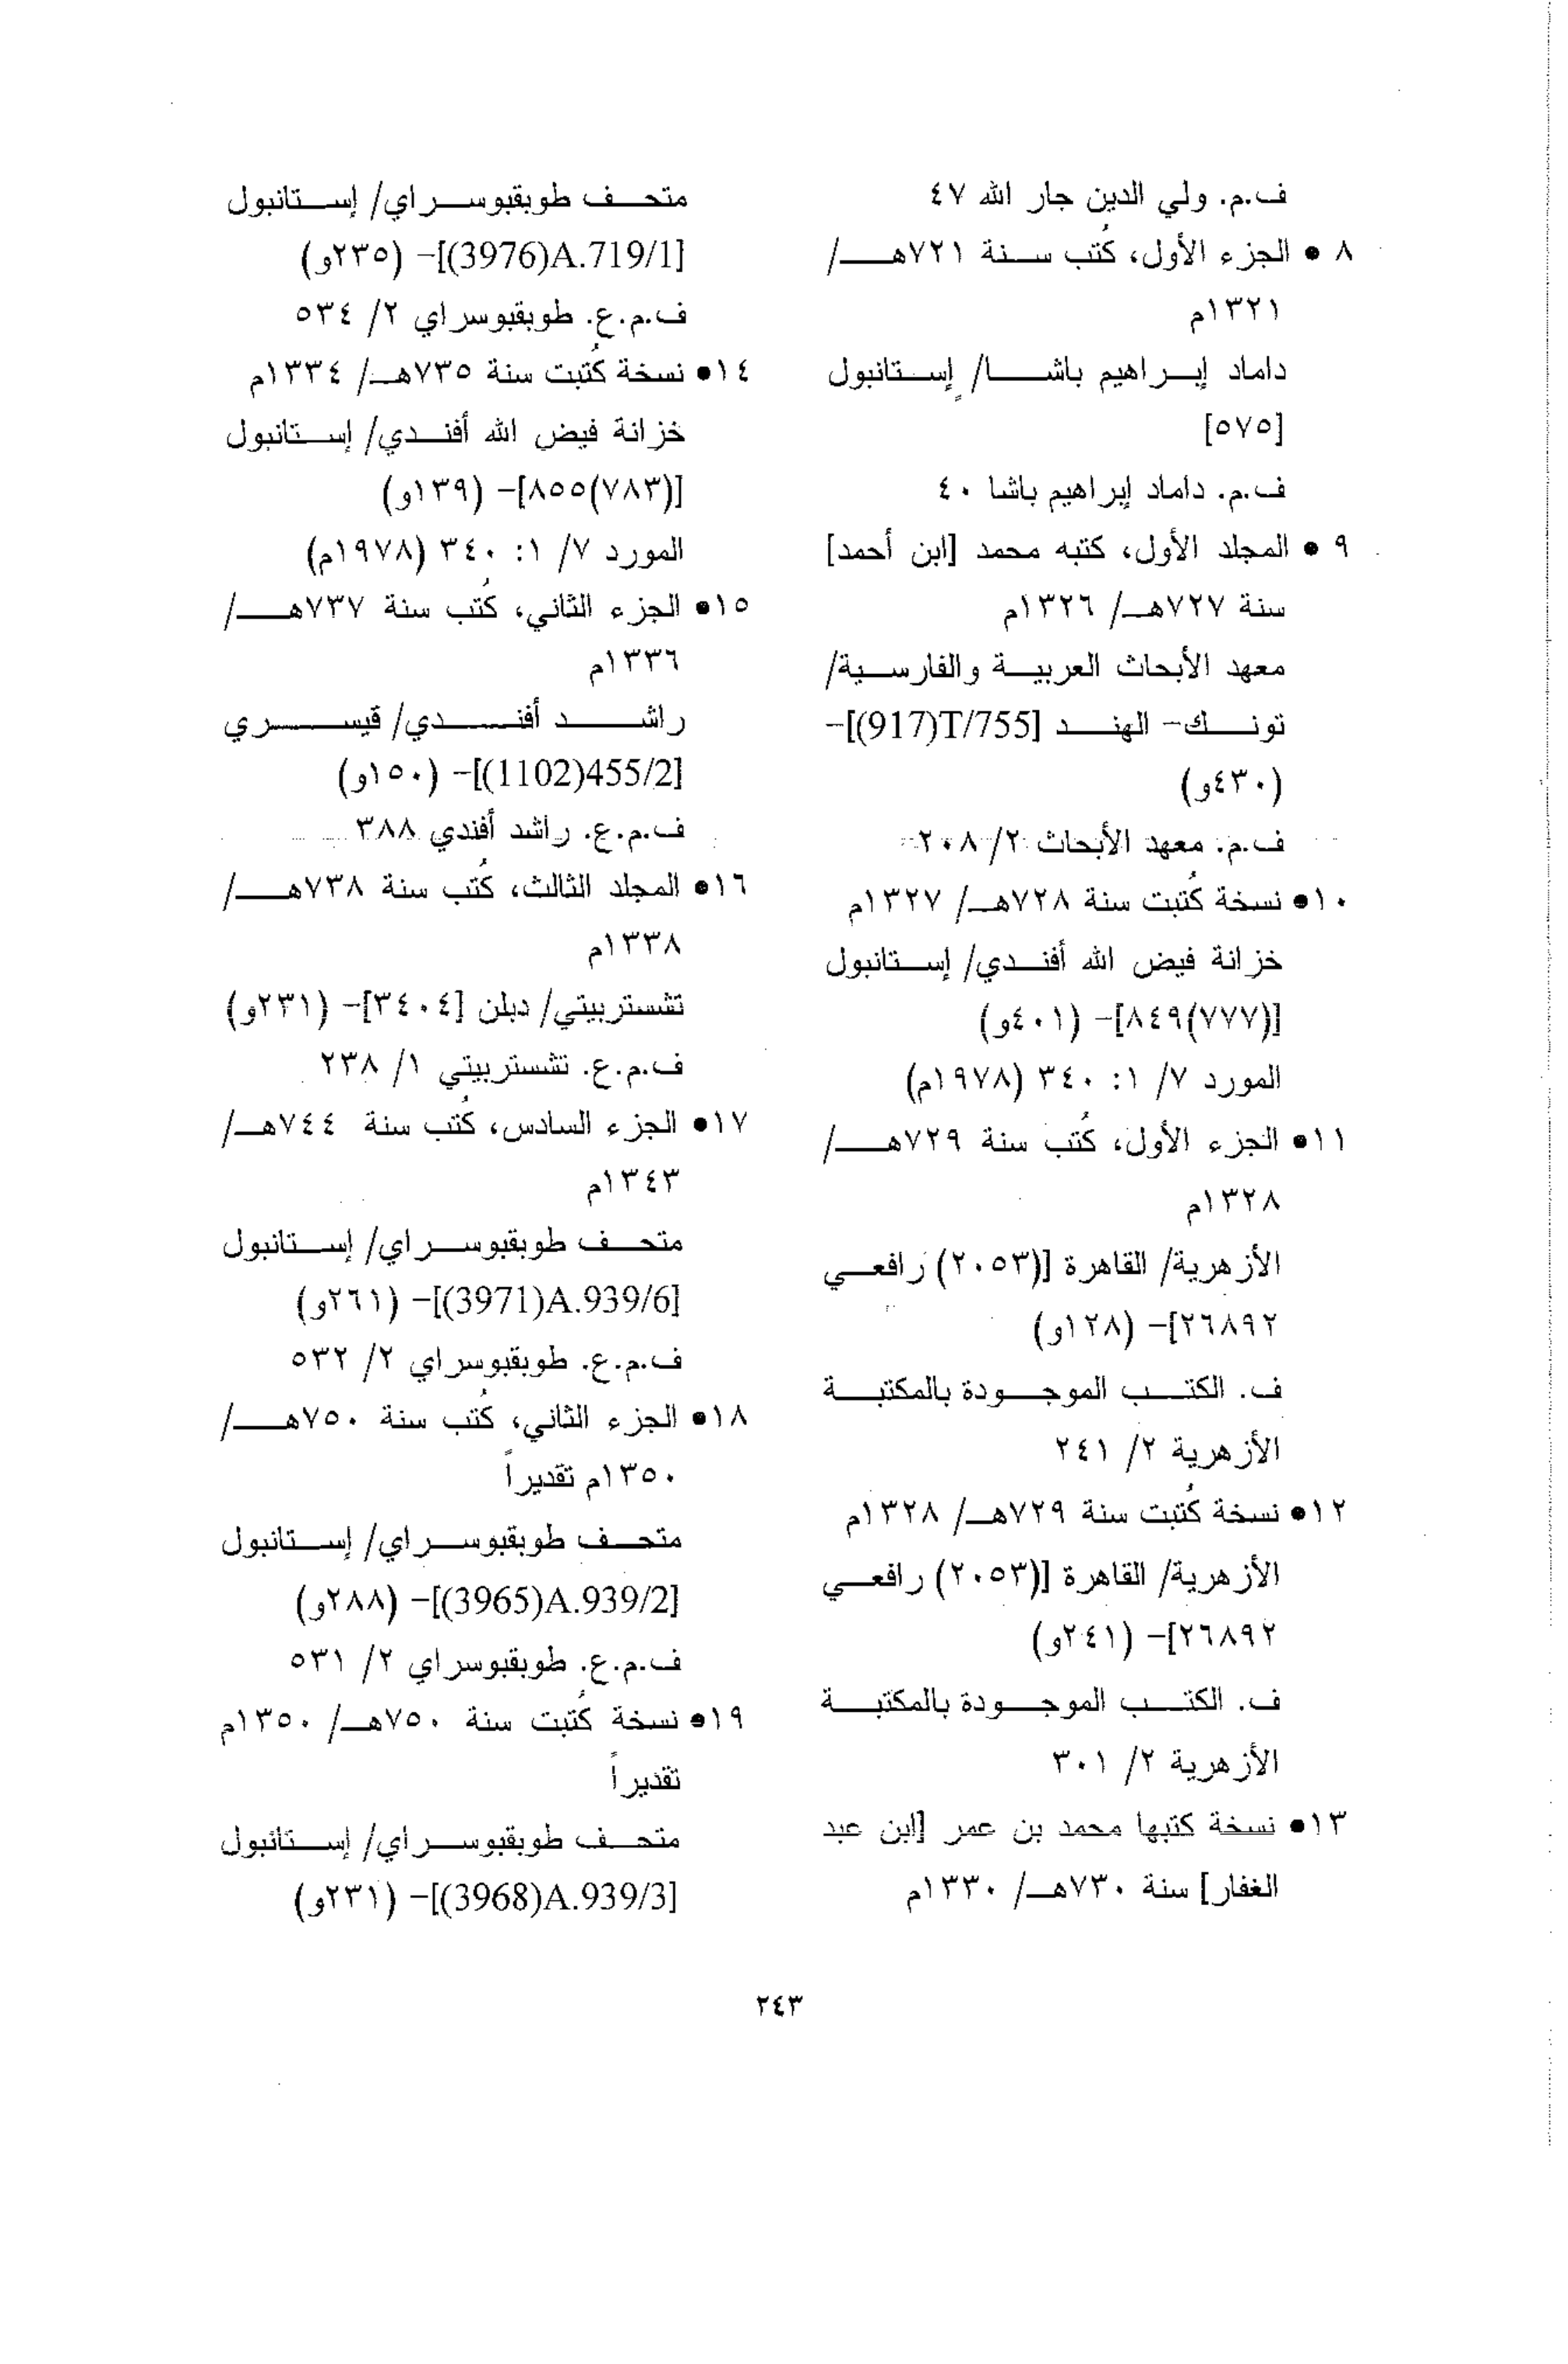 ف.م. ولي الدين جار الله ٤٧
٨ • الجزء الأول، كُتب سنة ٧٢١هـ/
١٣٢١م
داماد إبراهيم باشا/ إستانبول
[٥٧٥]
ف.م. داماد إبراهيم باشا ٤٠
٩ • المجلد الأول، كتبه محمد [ابن أحمد]
سنة ٧٢٧هـ/ ١٣٢٦م
معهد الأبحاث العربية والفارسية/
تونك- الهند [(917)T/755]-
(٤٣٠و)
ف.م. معهد الأبحاث ٢/ ٢٠٨
١٠• نسخة كُتبت سنة ٧٢٨هـ/ ١٣٢٧م
خزانة فيض الله أفندي/ إستانبول
[(٧٧٧)٨٤٩]- (٤٠١و)
المورد ٧/ ١: ٣٤٠ (١٩٧٨م)
١١• الجزء الأول، كُتب سنة ٧٢٩هـ/
١٣٢٨م
الأزهرية/ القاهرة [(٢٠٥٣) رافعي
٢٦٨٩٢]- (١٢٨و)
ف. الكتب الموجودة بالمكتبة
الأزهرية ٢/ ٢٤١
١٢• نسخة كُتبت سنة ٧٢٩هـ/ ١٣٢٨م
الأزهرية/ القاهرة [(٢٠٥٣) رافعي
٢٦٨٩٢]- (٢٤١و)
ف. الكتب الموجودة بالمكتبة
الأزهرية ٢/ ٣٠١
١٣• نسخة كتبها محمد بن عمر [ابن عبد
الغفار] سنة ٧٣٠هـ/ ١٣٣٠م
متحف طوبقبوسراي/ إستانبول
[(3976)A.719/1]- (٢٣٥و)
ف.م.ع. طوبقبوسراي ٢/ ٥٣٤
١٤• نسخة كُتبت سنة ٧٣٥هـ/ ١٣٣٤م
خزانة فيض الله أفندي/ إستانبول
[(٧٨٣)٨٥٥]- (١٣٩و)
المورد ٧/ ١: ٣٤٠ (١٩٧٨م)
١٥• الجزء الثاني، كُتب سنة ٧٣٧هـ/
١٣٣٦م
راشد أفندي/ قيسري
[(1102)455/2]- (١٥٠و)
ف.م.ع. راشد أفندي ٣٨٨
١٦• المجلد الثالث، كُتب سنة ٧٣٨هـ/
١٣٣٨م
تشستربيتي/ دبلن [٣٤٠٤]- (٢٣١و)
ف.م.ع. تشستربيتي ١/ ٢٣٨
١٧• الجزء السادس، كُتب سنة ٧٤٤هـ/
١٣٤٣م
متحف طوبقبوسراي/ إستانبول
[(3971)A.939/6]- (٢٦١و)
ف.م.ع. طوبقبوسراي ٢/ ٥٣٢
١٨• الجزء الثاني، كُتب سنة ٧٥٠هـ/
١٣٥٠م تقديراً
متحف طوبقبوسراي/ إستانبول
[(3965)A.939/2]- (٢٨٨و)
ف.م.ع. طوبقبوسراي ٢/ ٥٣١
١٩• نسخة كُتبت سنة ٧٥٠هـ/ ١٣٥٠م
تقديراً
متحف طوبقبوسراي/ إستانبول
[(3968)A.939/3]- (٢٣١و)
٢٤٣